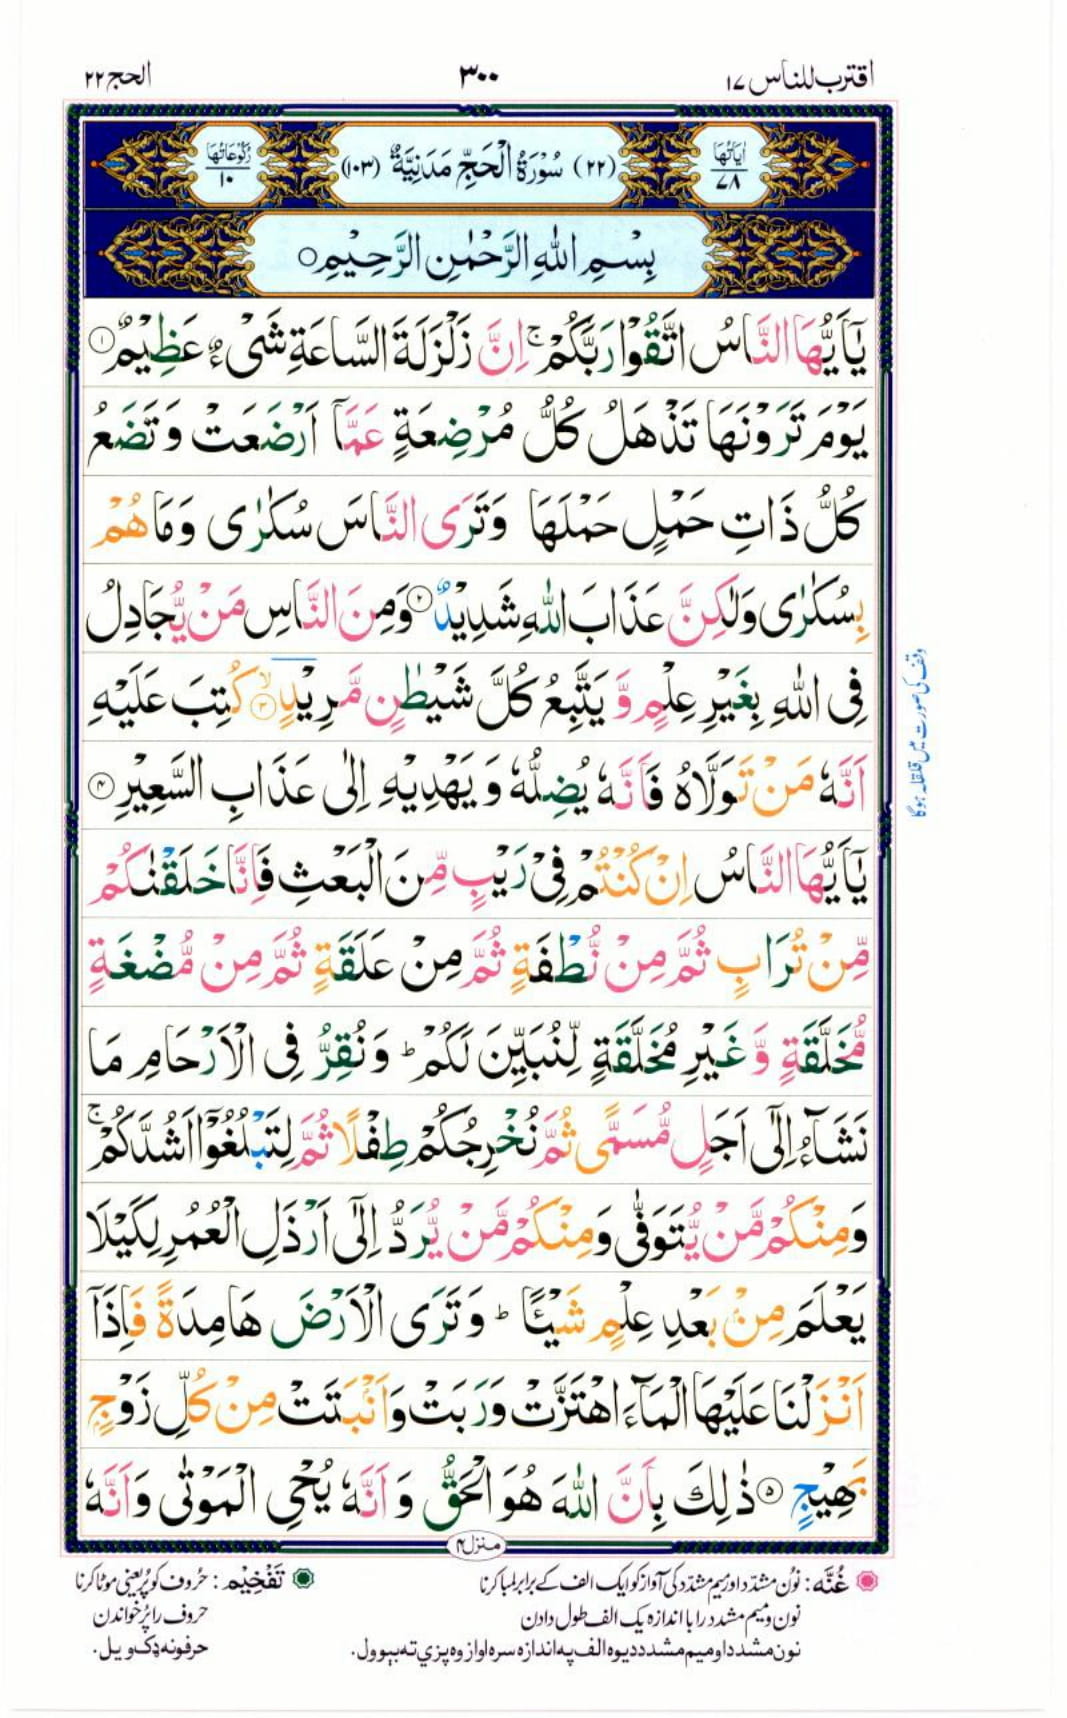 اقترب للناس ١٧
٣٠٠
الحج ٢٢
اٰيَاتُهَا ٧٨
(٢٢) سُوْرَةُ الْحَجِّ مَدَنِيَّةٌ (١٠٣)
رُكُوْعَاتُهَا ١٠
بِسْمِ اللّٰهِ الرَّحْمٰنِ الرَّحِيْمِ ○
يٰٓاَيُّهَا النَّاسُ اتَّقُوْا رَبَّكُمْ ۚ اِنَّ زَلْزَلَةَ السَّاعَةِ شَىْءٌ عَظِيْمٌ ①
يَوْمَ تَرَوْنَهَا تَذْهَلُ كُلُّ مُرْضِعَةٍ عَمَّآ اَرْضَعَتْ وَ تَضَعُ
كُلُّ ذَاتِ حَمْلٍ حَمْلَهَا وَتَرَى النَّاسَ سُكٰرٰى وَمَا هُمْ
بِسُكٰرٰى وَلٰكِنَّ عَذَابَ اللّٰهِ شَدِيْدٌ ② وَمِنَ النَّاسِ مَنْ يُّجَادِلُ
فِى اللّٰهِ بِغَيْرِ عِلْمٍ وَّ يَتَّبِعُ كُلَّ شَيْطٰنٍ مَّرِيْدٍ ۙ③ كُتِبَ عَلَيْهِ
اَنَّهٗ مَنْ تَوَلَّاهُ فَاَنَّهٗ يُضِلُّهٗ وَ يَهْدِيْهِ اِلٰى عَذَابِ السَّعِيْرِ ④
يٰٓاَيُّهَا النَّاسُ اِنْ كُنْتُمْ فِىْ رَيْبٍ مِّنَ الْبَعْثِ فَاِنَّا خَلَقْنٰكُمْ
مِّنْ تُرَابٍ ثُمَّ مِنْ نُّطْفَةٍ ثُمَّ مِنْ عَلَقَةٍ ثُمَّ مِنْ مُّضْغَةٍ
مُّخَلَّقَةٍ وَّ غَيْرِ مُخَلَّقَةٍ لِّنُبَيِّنَ لَكُمْ ؕ وَ نُقِرُّ فِى الْاَرْحَامِ مَا
نَشَآءُ اِلٰٓى اَجَلٍ مُّسَمًّى ثُمَّ نُخْرِجُكُمْ طِفْلًا ثُمَّ لِتَبْلُغُوْٓا اَشُدَّكُمْ ۚ
وَمِنْكُمْ مَّنْ يُّتَوَفّٰى وَمِنْكُمْ مَّنْ يُّرَدُّ اِلٰٓى اَرْذَلِ الْعُمُرِ لِكَيْلَا
يَعْلَمَ مِنْۢ بَعْدِ عِلْمٍ شَيْـًٔا ؕ وَ تَرَى الْاَرْضَ هَامِدَةً فَاِذَآ
اَنْزَلْنَا عَلَيْهَا الْمَآءَ اهْتَزَّتْ وَرَبَتْ وَاَنْۢبَتَتْ مِنْ كُلِّ زَوْجٍۢ
بَهِيْجٍ ⑤ ذٰلِكَ بِاَنَّ اللّٰهَ هُوَ الْحَقُّ وَ اَنَّهٗ يُحْىِ الْمَوْتٰى وَاَنَّهٗ
وقف کی صورت میں قلقلہ ہوگا
منزل ٤
غُنَّه : نُون مشدّد اور میم مشدّد کی آواز کو ایک الف کے برابر لمبا کرنا
نون و میم مشدد را با اندازه یک الف طول دادن
نون مشدد او میم مشدد دیوه الف په اندازه سره اواز وه پزې ته بېوول.
تَفْخِيْم : حُروف کو پُر یعنی موٹا کرنا
حروف را پر خواندن
حرفونه ډک ویل.